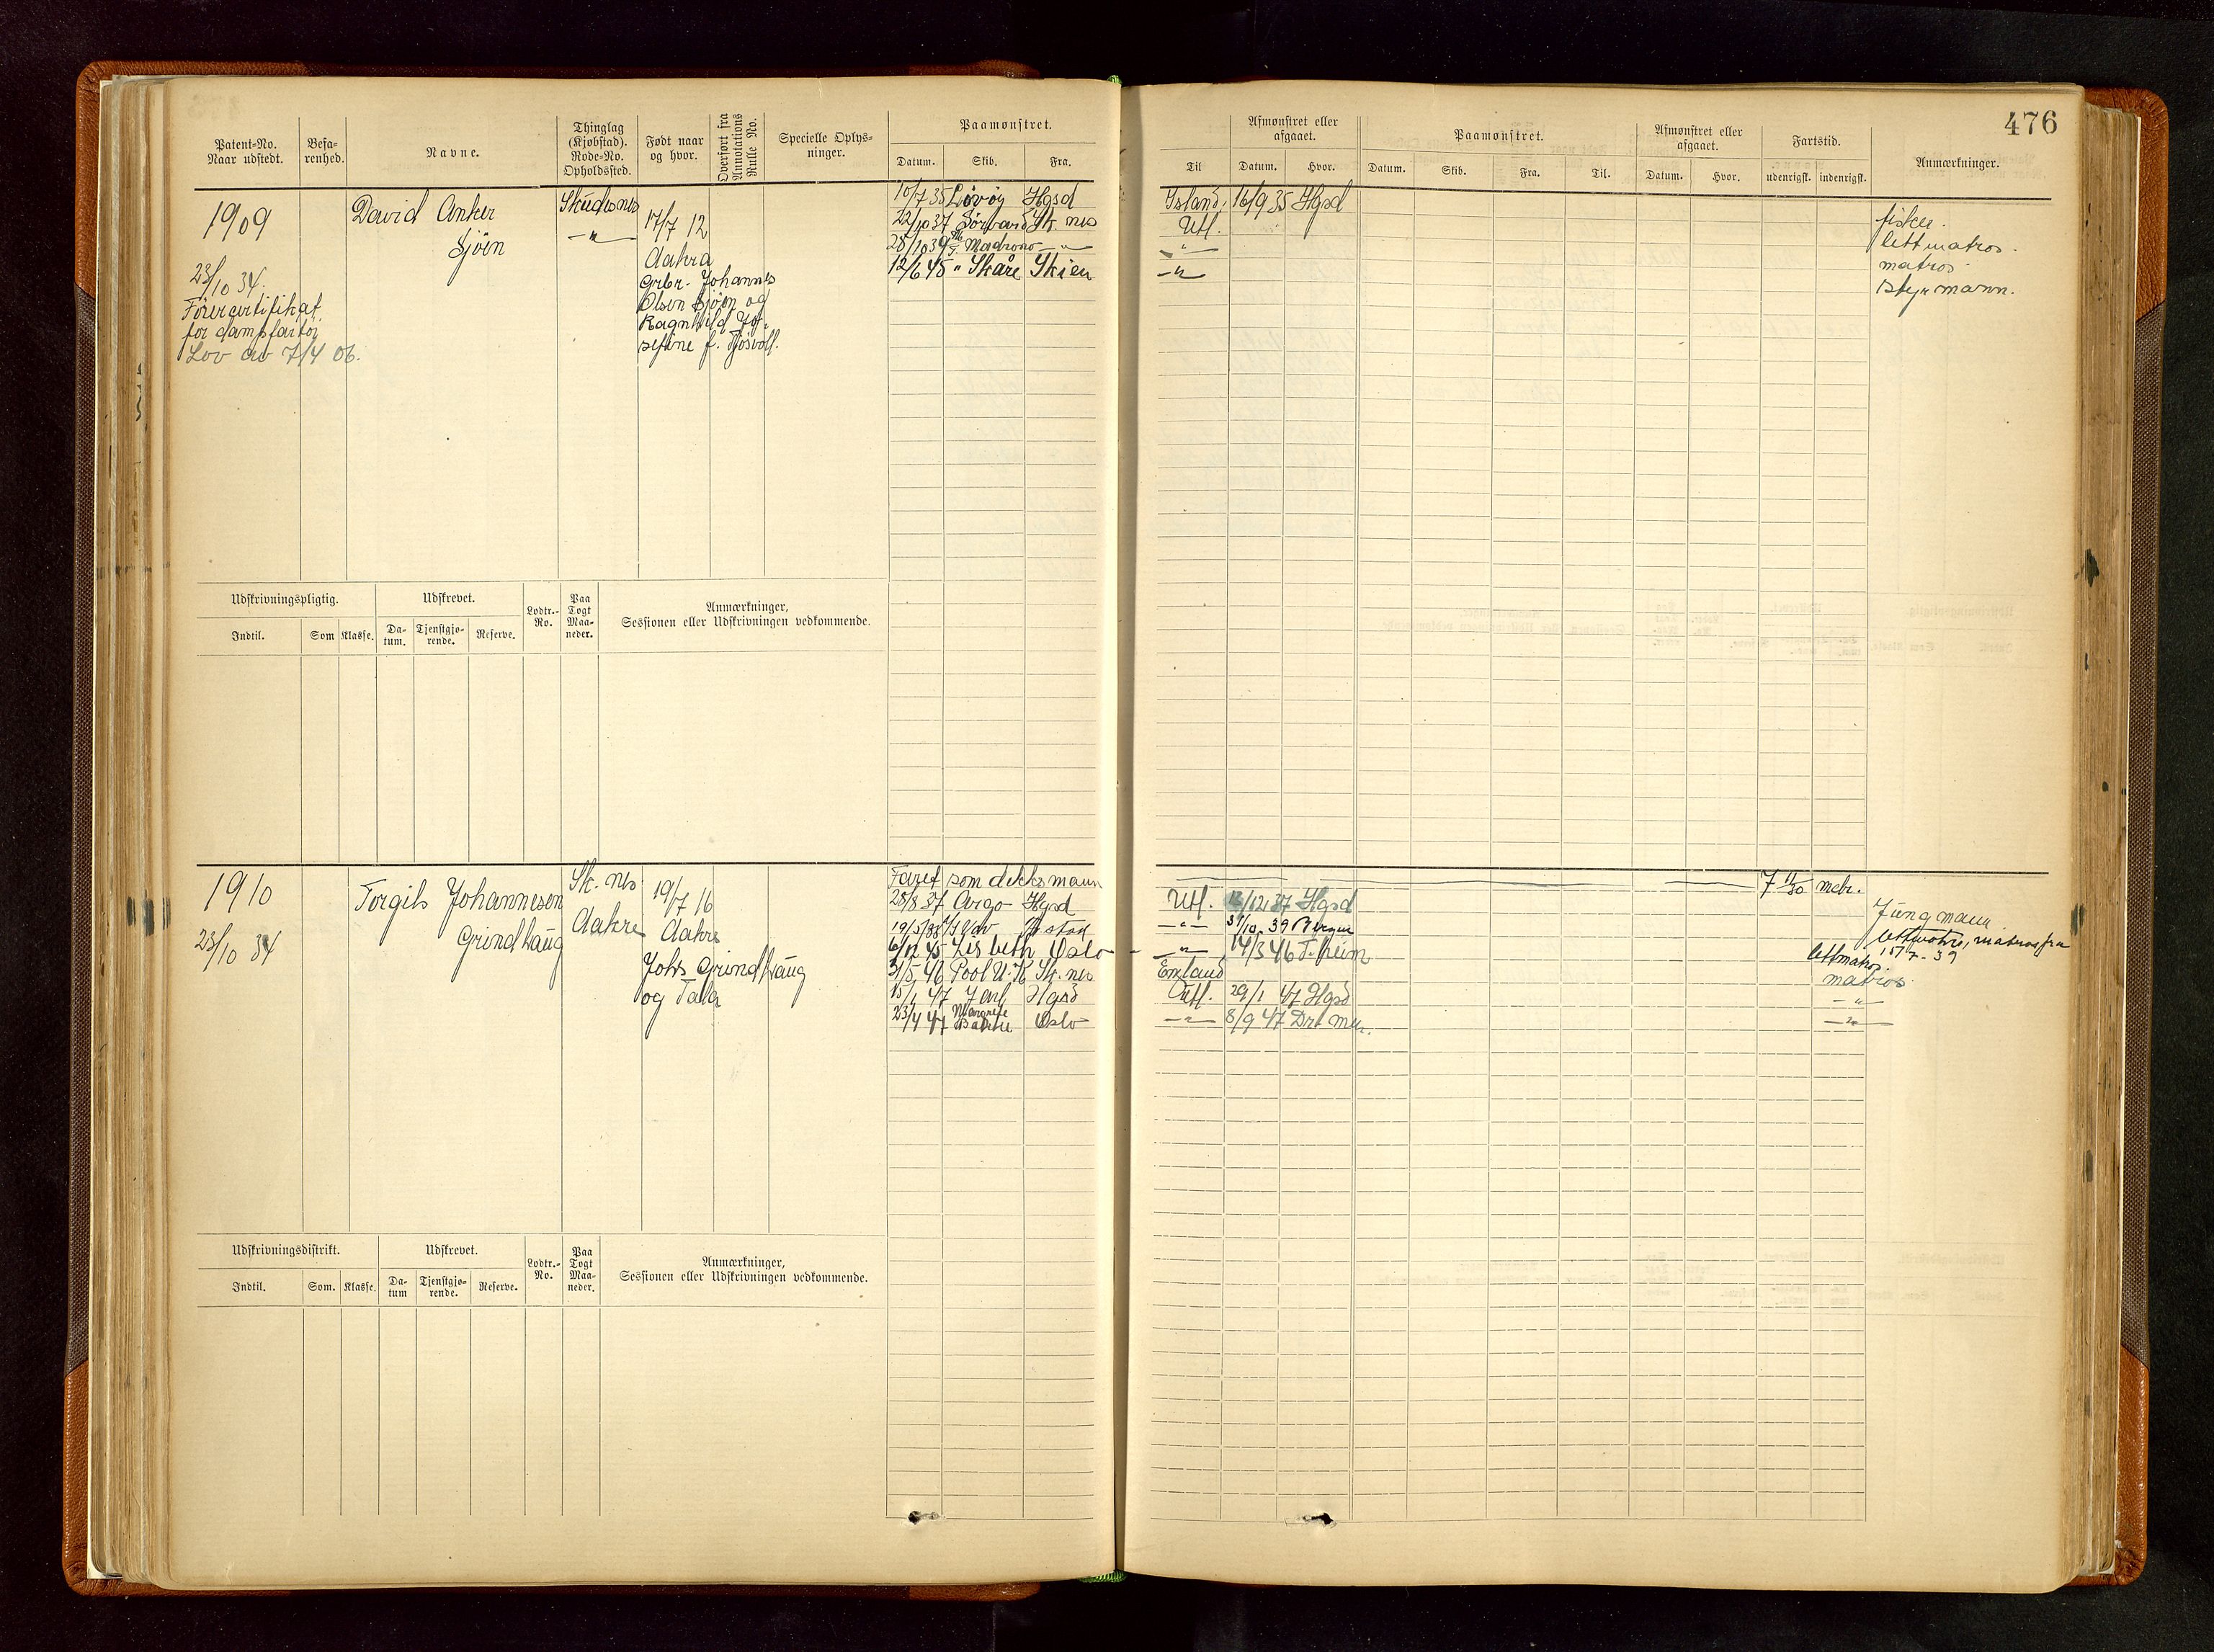 476
Patent-No. Naar udstedt.
Befa-renhed.
Navne.
Thinglag (Kjøbstad). Rode-No. Opholdssted.
Født naar og hvor.
Overført fra Annotations Rulle No.
Specielle Oplys-ninger.
Paamønstret.
Datum. Skib. Fra.
Til
Afmønstret eller afgaaet.
Datum. Hvor.
Paamønstret.
Datum. Skib. Fra. Til.
Afmønstret eller afgaaet.
Datum. Hvor.
Fartstid.
udenrigst. indenrigst.
Anmærkninger.
1909
23/10 34.
Förercertifikat
for dampfartöi
Lov av 7/4 06.
David Anker
Sjöen
Skudesnes
—"—
17/7 12
Aakra
Grbr. Johannes
Olsen Sjöen og
Ragnhild Jo-
sefine f. Tjösvoll.
10/7 35 Lövöy Hgsd Island 16/9 35 Hgsd fisker.
22/10 37 Sörvard Sk. nes Utl. lettmatros.
28/10 39 Madrono —"— —"— matros
12/6 45 " Skåre Skien —"— Styrmann.
Udskrivningspligtig.
Udskrevet.
Lodtr.-No.
Paa Togt Maa-neder.
Anmærkninger,
Sessionen eller Udskrivningen vedkommende.
Indtil. Som Klasse. Da-tum. Tjenstgjø-rende. Reserve.
1910
23/10 34
Torgils Johannesen
Grindhaug
Sk. nes
Aakre
19/7 16
Aakre
Johs Grindhaug
og Talla
Faret som dekksmann 7 11/30 mdr.
28/8 37 Argo Hgsd Utl. /12 37 Hgsd Jungmann
19/5 38 —"— 31/10 39 Bergen lettmatros, matros fra
6/12 45 Lisbeth Oslo —"— 14/3 46 T.heim lettmatros.
3/5 46 Pool U.K Sk. nes England matros
15/1 47 Jarl Hgsd Utl. 29/1 47 Hgsd —"—
23/4 47 Margrethe Bakke Oslo —"— 8/9 47 Drammen. —"—
Udskrivningsdistrikt.
Udskrevet.
Lodtr.-No.
Paa Togt Maa-neder.
Anmærkninger,
Sessionen eller Udskrivningen vedkommende.
Indtil. Som. Klasse. Da-tum Tjenstgjø-rende. Reserve.